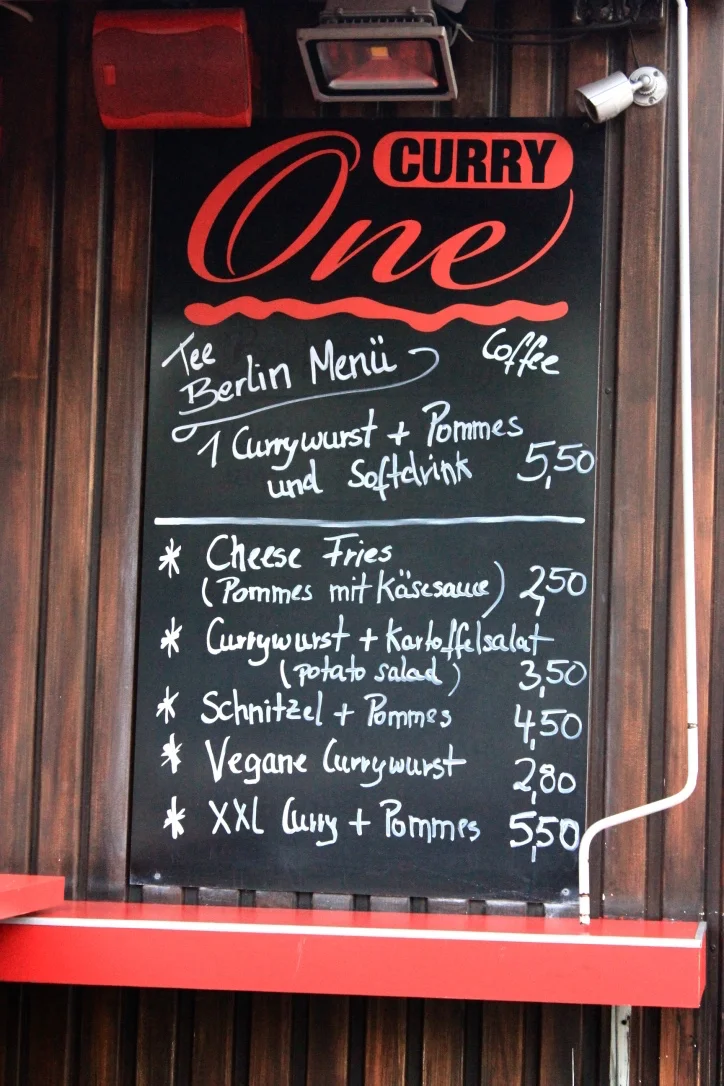 CURRY
One
Tee Coffee
Berlin Menü
1 Currywurst + Pommes
und Softdrink 5,50
* Cheese Fries
(Pommes mit Käsesauce) 2,50
* Currywurst + Kartoffelsalat
(potato salad) 3,50
* Schnitzel + Pommes 4,50
* Vegane Currywurst 2,80
* XXL Curry + Pommes 5,50